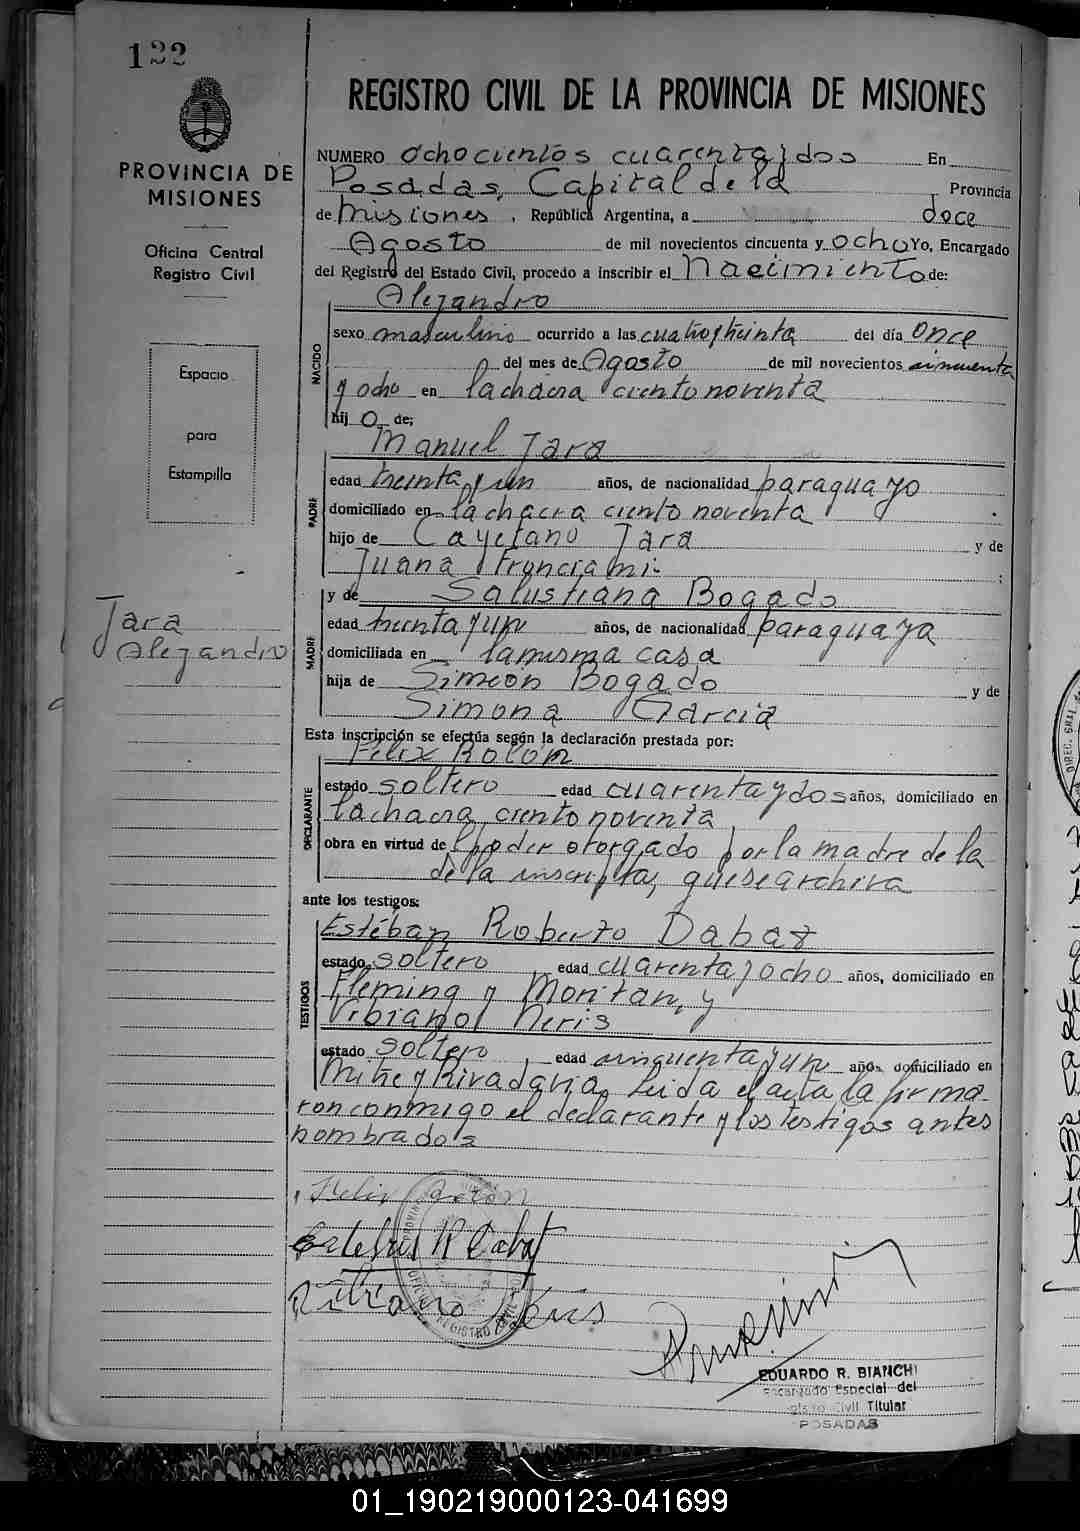 122
PROVINCIA DE
MISIONES
Oficina Central
Registro Civil
Espacio
para
Estampilla
Jara
Alejandro
REGISTRO CIVIL DE LA PROVINCIA DE MISIONES
NUMERO ochocientos cuarenta y dos En
Posadas, Capital de la Provincia
de Misiones, República Argentina, a doce
Agosto de mil novecientos cincuenta y ocho Yo, Encargado
del Registro del Estado Civil, procedo a inscribir el Nacimiento de:
NACIDO
Alejandro
sexo masculino ocurrido a las cuatro y treinta del día once
del mes de Agosto de mil novecientos cincuenta
y ocho en la chacra ciento noventa
hij o de;
Manuel Jara
PADRE
edad treinta y un años, de nacionalidad paraguayo
domiciliado en la chacra ciento noventa
hijo de Cayetano Jara y de
Juana
y de Salustiana Bogado
MADRE
edad treinta y un años, de nacionalidad paraguaya
domiciliada en la misma casa
hija de Simeón Bogado y de
Simona Garcia
Esta inscripción se efectúa según la declaración prestada por:
Félix Rolón
DECLARANTE
estado soltero edad cuarenta y dos años, domiciliado en
la chacra ciento noventa
obra en virtud de poder otorgado por la madre de la
de la inscripta, que se archiva
ante los testigos:
TESTIGOS
Estéban Roberto Dabat
estado soltero edad cuarenta y ocho años, domiciliado en
Fleming y Moritan, y
Vibiano Neris
estado soltero, edad cinquenta y un años, domiciliado en
Mitre y Rivadavia. Leida el acta la firma-
ron conmigo el declarante y los testigos antes
nombrados
Felix Rolon
Esteban R Dabat
Vibiano Neris
EDUARDO R. BIANCHI
Encargado Especial del
Registro Civil Titular
POSADAS
01_190219000123-041699